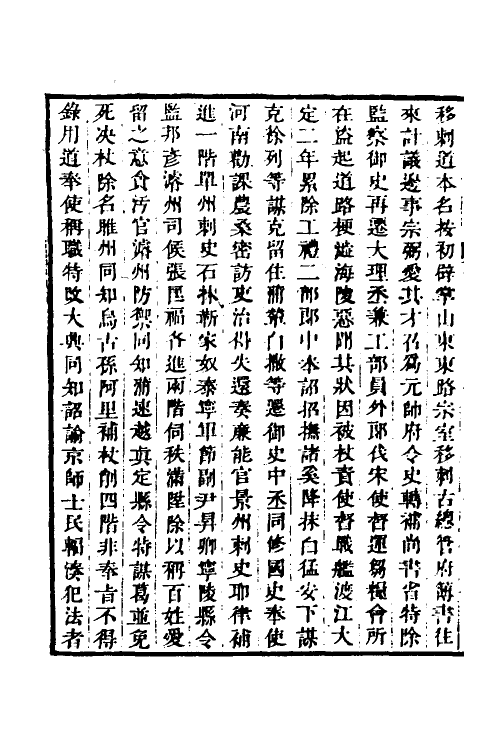 移剌道本名按初辟掌山東東路宗室移剌古總管府簿書往
來計議邊事宗弼愛其才召爲元帥府令史轉補尚書省特除
監察御史再遷大理丞兼工部員外郎伐宋使督運芻糧會所
在盜起道路梗澁海陵惡聞其狀因被杖責使督戰艦渡江大
定二年累除工禮二部郎中奉詔招撫諸奚降抹白猛安下謀
克徐列等謀克留住蒲輦白撒等遷御史中丞同修國史奉使
河南勸課農桑密訪吏治得失還奏廉能官景州刺史耶律補
進一階單州刺史石抹靳家奴泰寧軍節副尹昇卿寧陵縣令
監邦彥濬州司候張匡福各進兩階伺秩滿陞除以稱百姓愛
留之意食汚官濬州防禦同知蒲速越眞定縣令特謀葛並免
死決杖除名睢州同知烏古孫阿里補杖削四階非奉旨不得
錄用道奉使稱職特改大興同知詔諭京師士民輻湊犯法者